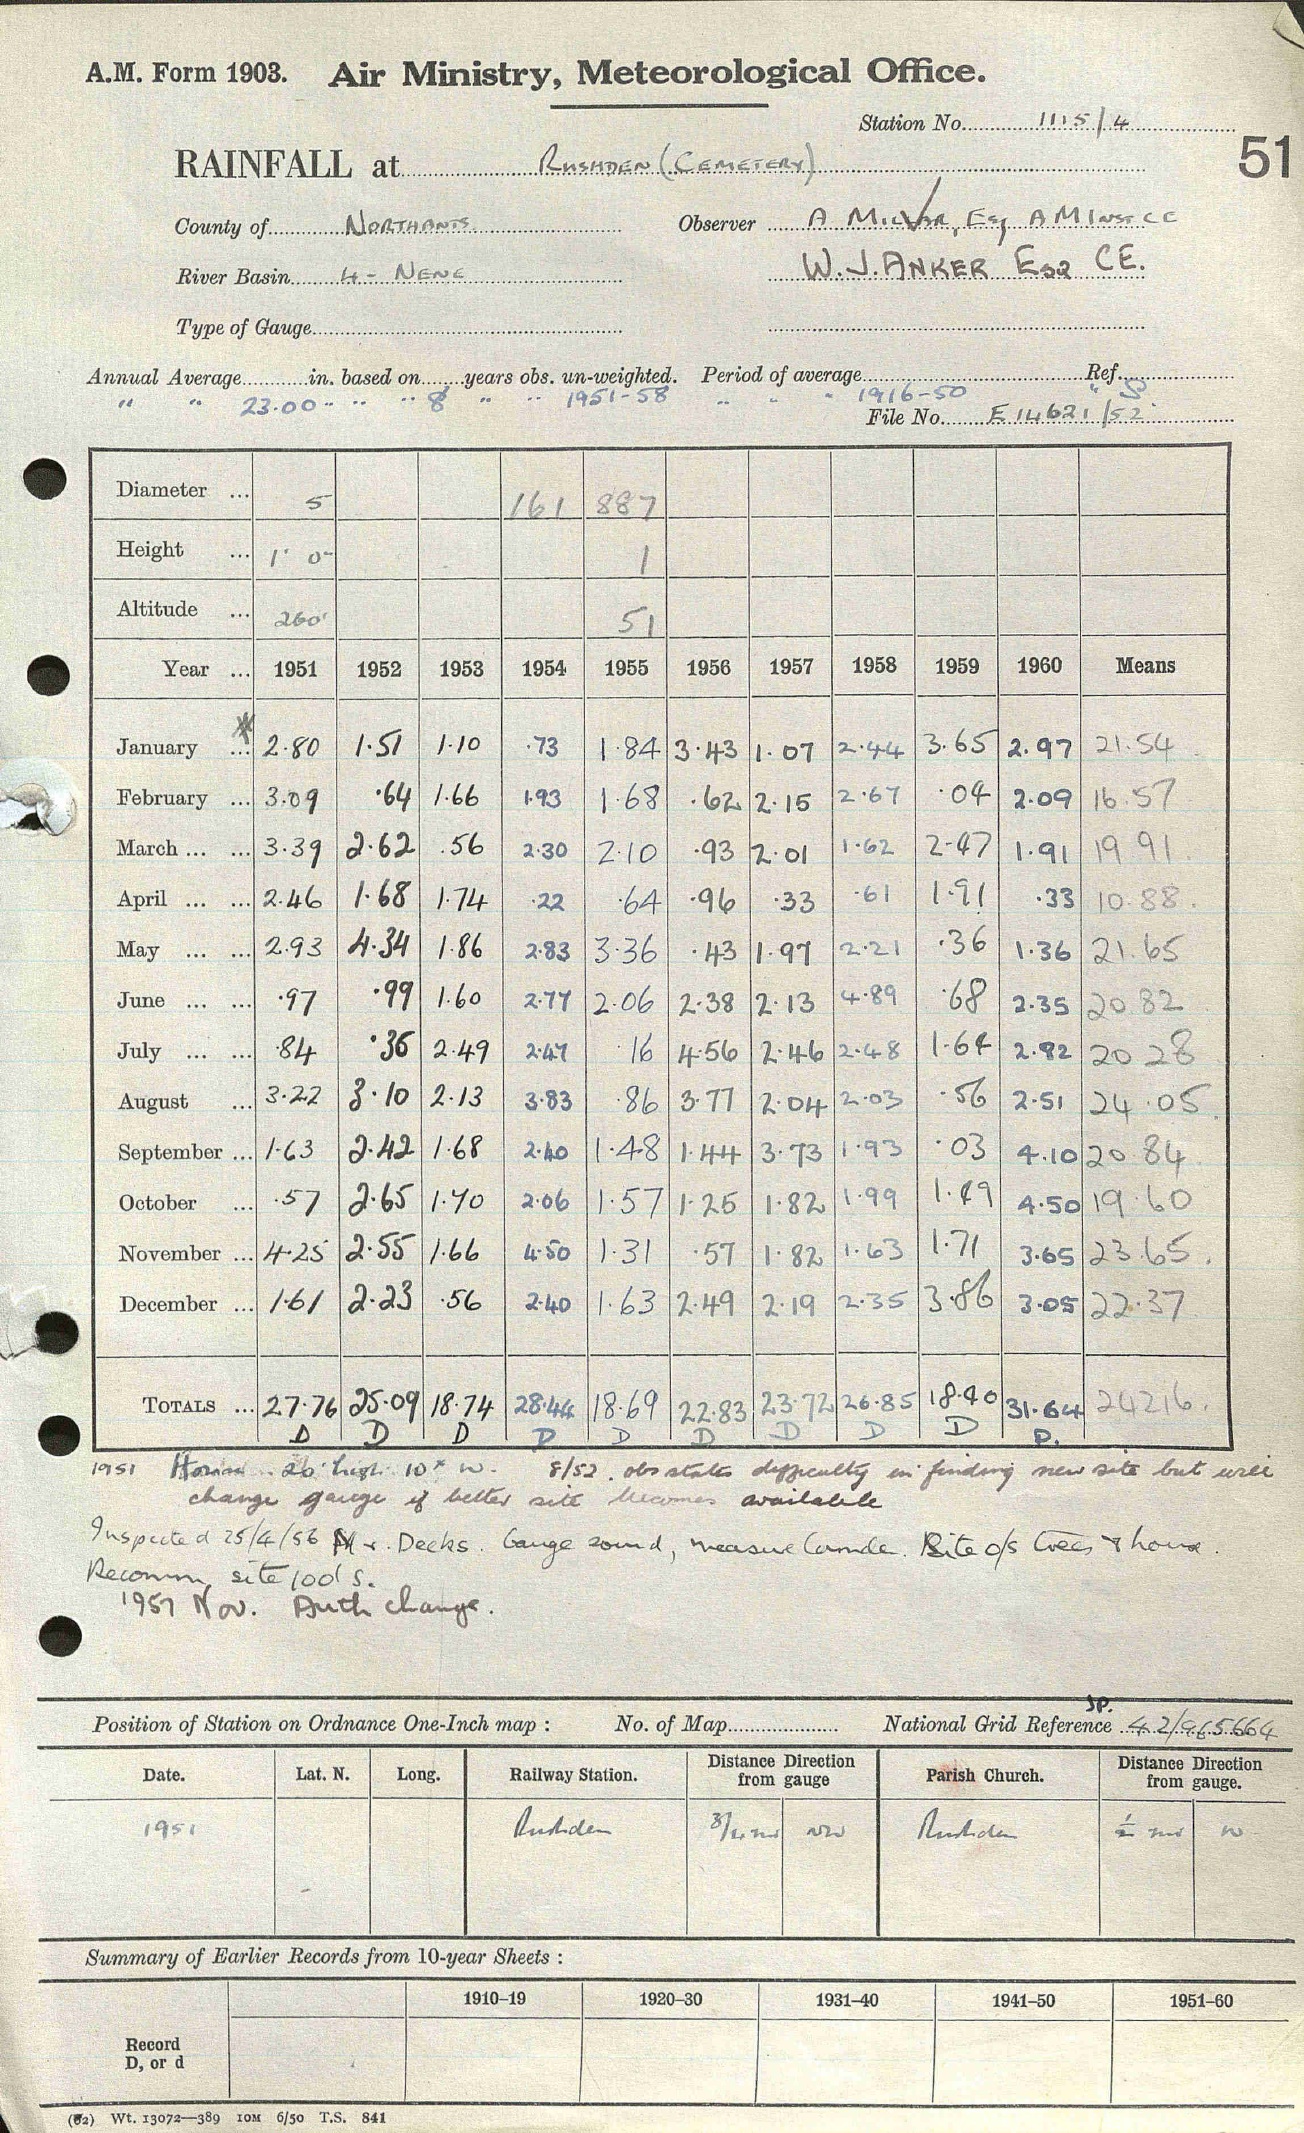 A.M. Form 1903. Air Ministry, Meteorological Office.
Station No. 1115/4
51
RAINFALL at RUSHDEN (CEMETERY)
County of NORTHANTS Observer A MILLAR, Esq A M INST CE
River Basin 4 - NENE W. J. ANKER ESQ CE.
Type of Gauge
Annual Average in. based on years obs. un-weighted. Period of average Ref.
" " 23.00 " " " 8 " " 1951-58 " " " 1916-50 " S.
File No. E 14621/52
Diameter ... 5 161 887
Height ... 1' 0" 1
Altitude ... 260' 51
Year ... 1951 1952 1953 1954 1955 1956 1957 1958 1959 1960 Means
January ... 2.80 1.51 1.10 .73 1.84 3.43 1.07 2.44 3.65 2.97 21.54
February ... 3.09 .64 1.66 1.93 1.68 .62 2.15 2.67 .04 2.09 16.57
March ... ... 3.39 2.62 .56 2.30 2.10 .93 2.01 1.62 2.47 1.91 19 91
April ... ... 2.46 1.68 1.74 .22 .64 .96 .33 .61 1.91 .33 10.88
May ... ... 2.93 4.34 1.86 2.83 3.36 .43 1.97 2.21 .36 1.36 21.65
June ... ... .97 .99 1.60 2.77 2.06 2.38 2.13 4.89 .68 2.35 20 82
July ... ... .84 .36 2.49 2.47 .16 4.56 2.46 2.48 1.64 2.92 20 28
August ... 3.22 3.10 2.13 3.83 .86 3.77 2.04 2.03 .56 2.51 24.05
September ... 1.63 2.42 1.68 2.40 1.48 1.44 3.73 1.93 .03 4.10 20 84
October ... .57 2.65 1.70 2.06 1.57 1.25 1.82 1.99 1.49 4.50 19.60
November ... 4.25 2.55 1.66 4.50 1.31 .57 1.82 1.63 1.71 3.65 23.65
December ... 1.61 2.23 .56 2.40 1.63 2.49 2.19 2.35 3.86 3.05 22.37
TOTALS ... 27.76 25.09 18.74 28.44 18.69 22.83 23.72 26.85 18.40 31.64 242 16
D D D D D D D D D D.
1951 26' high 10x W. 8/52. obs states difficulty in finding new site but will
change gauge if better site becomes available
Inspected 25/4/56 Mr. Decks. Gauge sound, measure Site o/s trees & house.
Recomm site 100' S.
1957 Nov. Auth change.
SP.
Position of Station on Ordnance One-Inch map : No. of Map National Grid Reference 42/965664
Date. Lat. N. Long. Railway Station. Distance from gauge Direction Parish Church. Distance from gauge. Direction
1951 Rushden 3/4 mi NW Rushden 1/2 mi W
Summary of Earlier Records from 10-year Sheets :
1910–19 1920–30 1931–40 1941–50 1951–60
Record
D, or d
(62) Wt. 13072—389 10M 6/50 T.S. 841